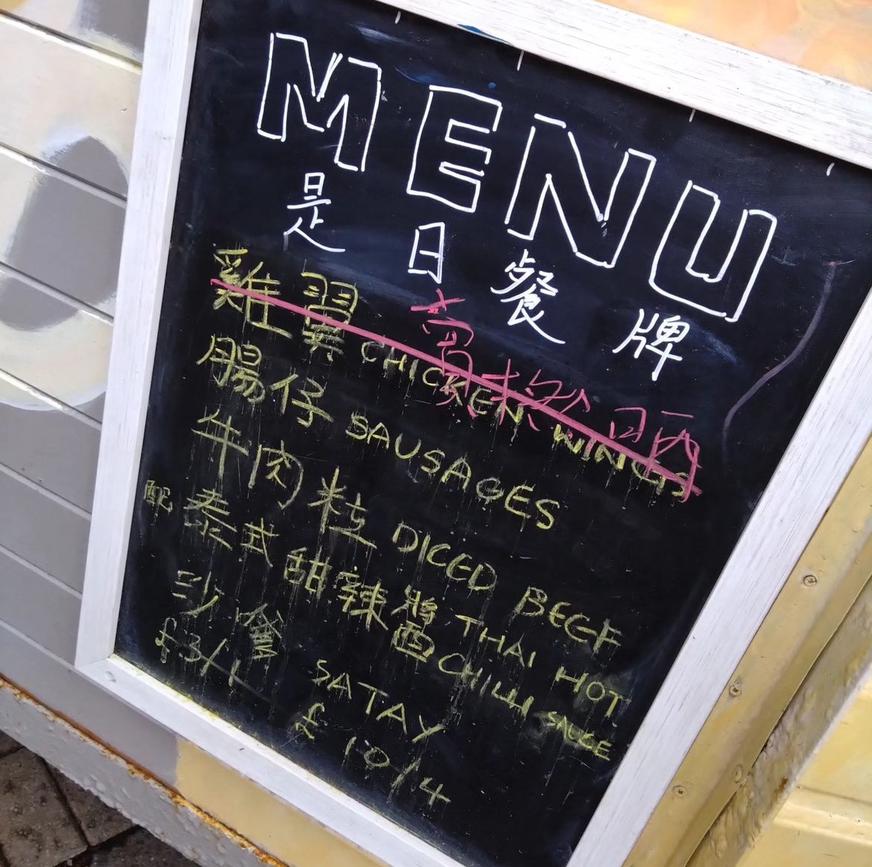 MENU
是日餐牌
雞翼 CHICKEN WINGS
腸仔 SAUSAGES
牛肉粒 DICED BEEF
配泰式甜辣醬 THAI HOT CHILLI SAUCE
沙嗲 SATAY
£3/1 £10/4